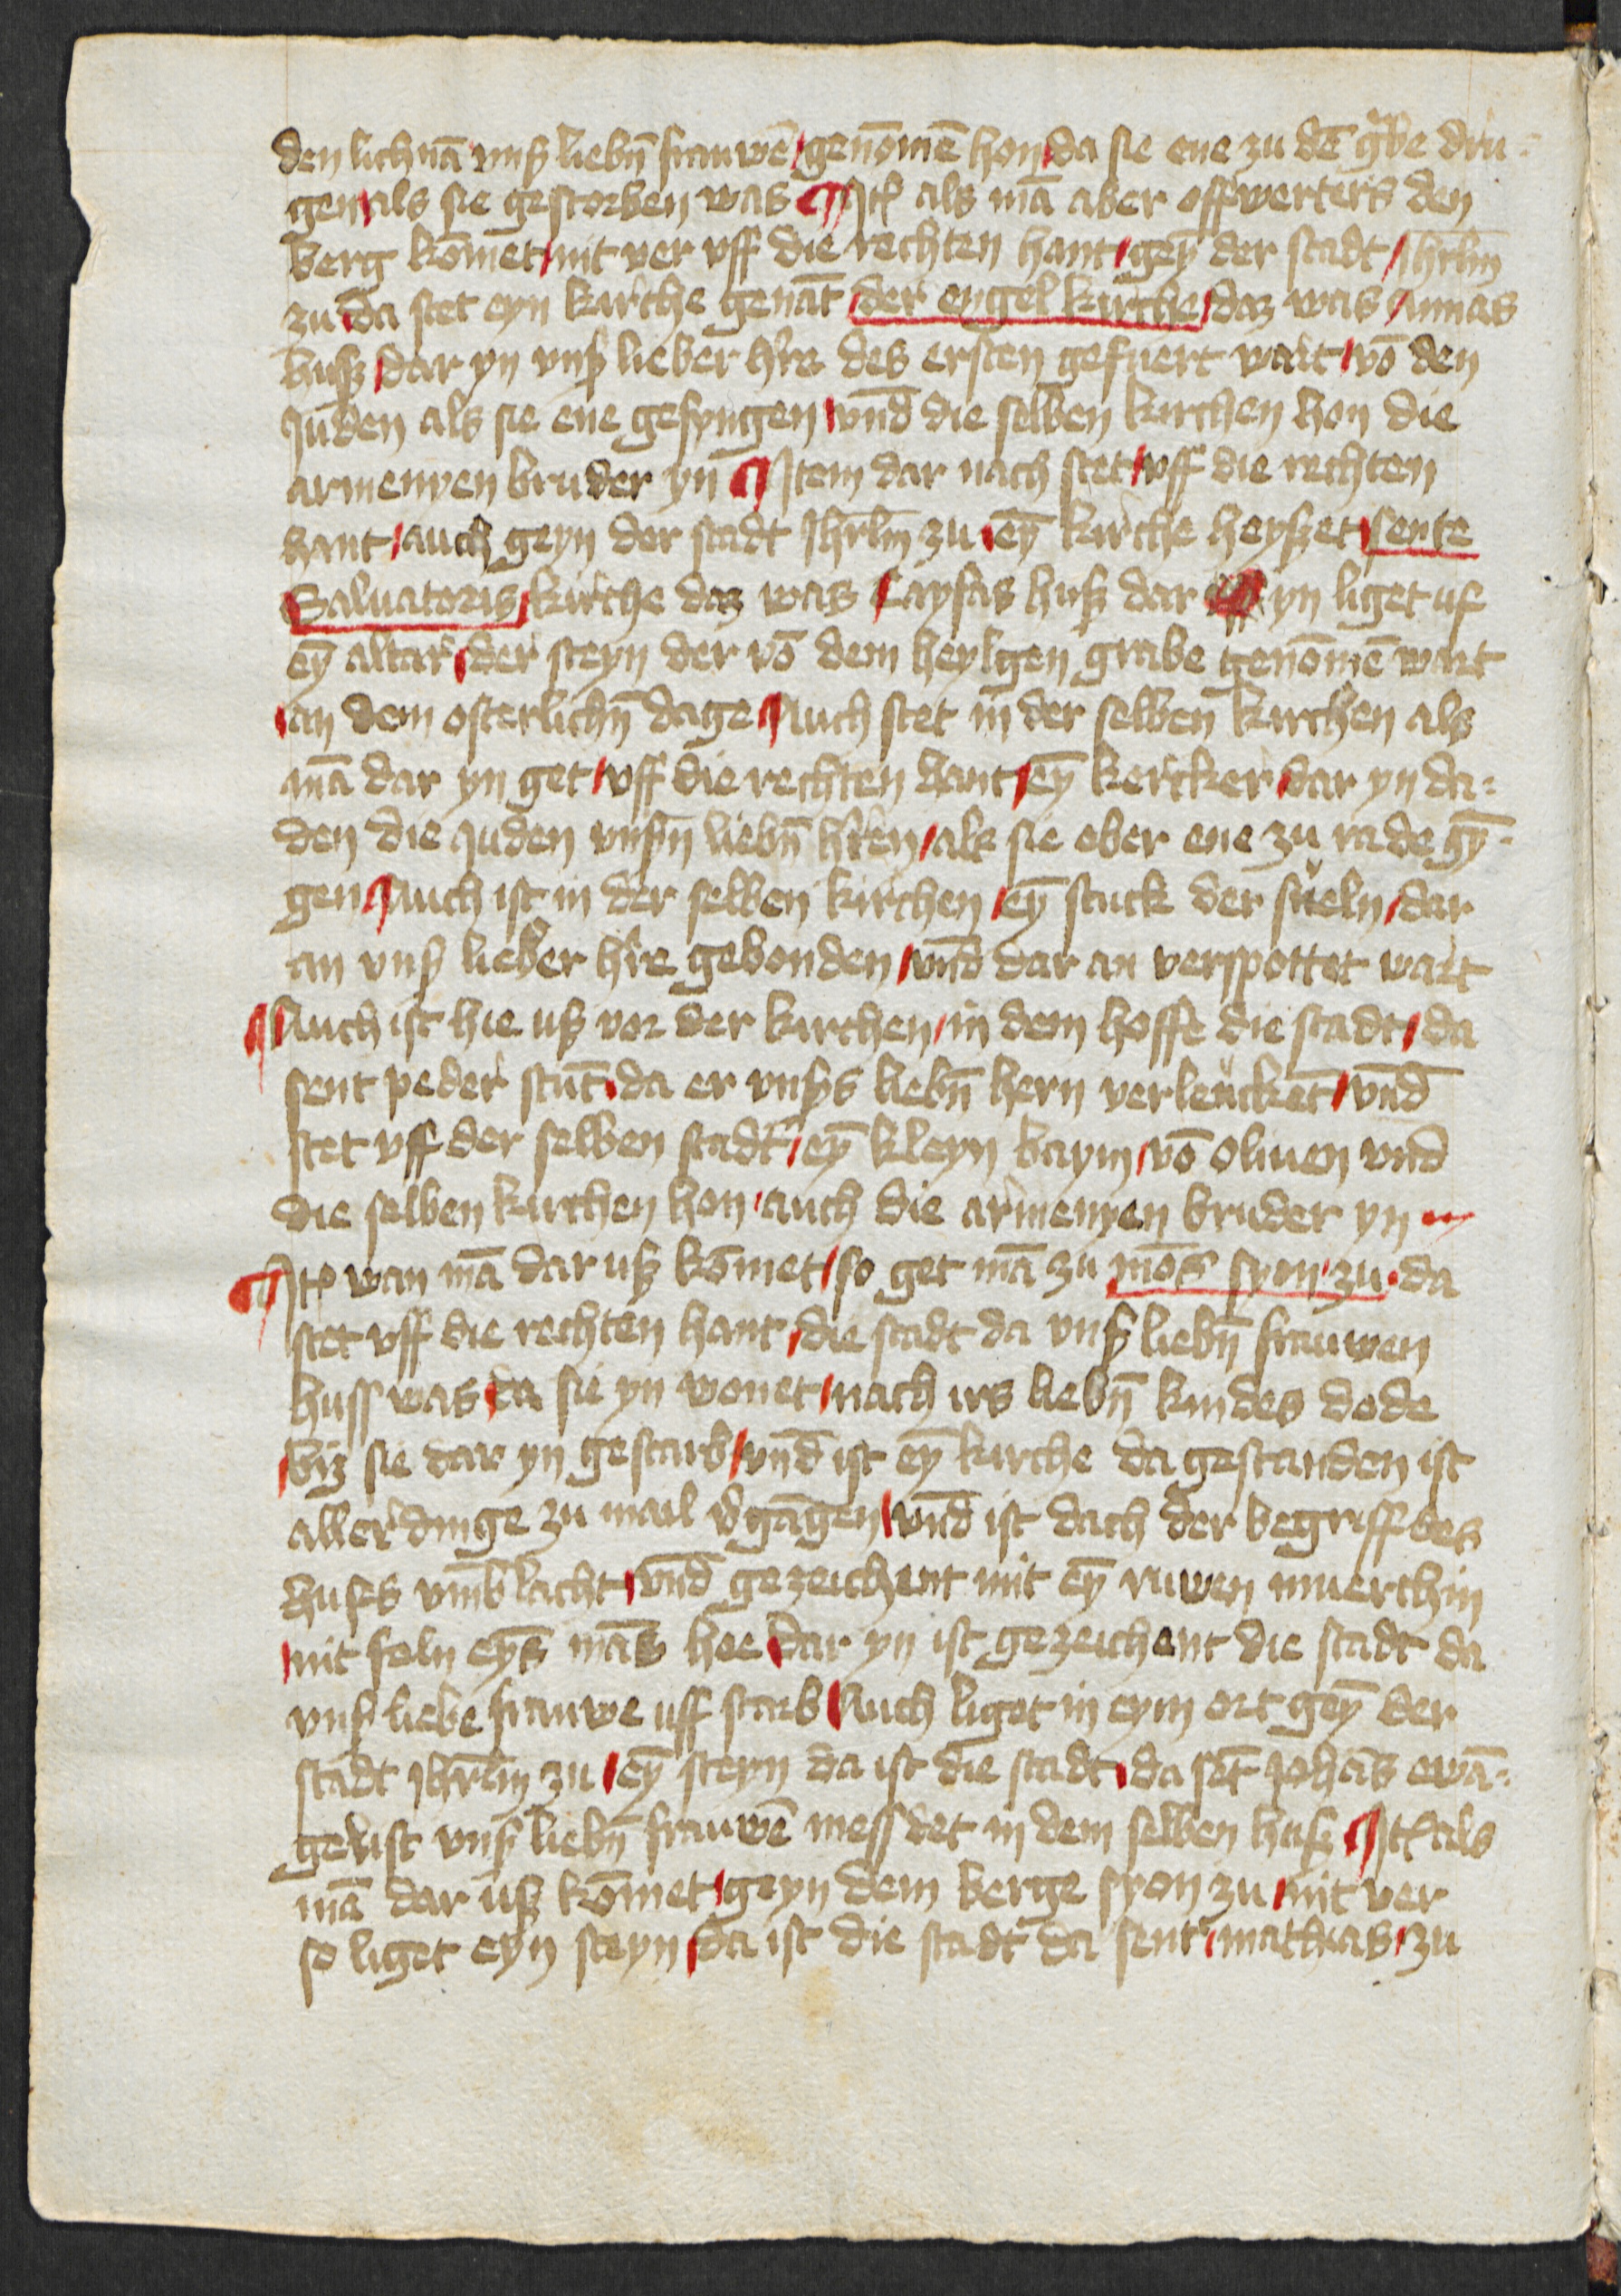 den lichnā vnß liebn̄ frauwē / genōmē hon / da sie ene zu dē gͣbe dru-
gen / als sie gestorben was ¶ Itē als mā aber offwerters den
berg kōmet / nit ver vff die rechten hant / geȳ der stadt / Jhrl̄m
zu / da stet eyn kirche genāt / der engel kirche / daz was / Annas
huß / dar yn vnß lieber h̄re des ersten gefuert wart / vō den
Juden als sie ene gefyngen / vnd̄ die selben kirchen hon die
armenyen bruder yn ¶ Item dar nach stet / vff die rechten
hant / auch geyn der stadt Jhrl̄m zu / eȳ kirche heyßet / sente
Saluatoris / kirche daz was / Cayfas huß dar yn liget uf
eȳ altar / der steyn der vō dem heylgen grabe genōmē wart
/ an dem osterlichn̄ dage / Auch stet in der selben kirchen als
mā dar yn get / vff die rechten hant / eȳ kercker / dar yn da-
den die Juden vnßn̄ liebn̄ h̄ren / als sie ober ene zu rade gȳ-
gen / Auch ist in der selben kirchen / eȳ stuck der sueln / dar
an vnß lieber h̄re gebonden / vnd̄ dar an verspottet wart
¶ Auch ist hie uß vor der kirchen / in dem hoffe die stadt / da
sent peder stūt / da er vnßs liebn̄ hern verleucket / vnd̄
stet vff der selben stadt / eȳ kleyn baym / vō oliuen vnd̄
die selben kirchen hon / auch die armenyen bruder yn
¶ Itē wan mā dar uß kōmet / so get mā zu mōs syon zu / da
stet vff die rechten hant / die stadt da vnß liebn̄ frauwen
huss was / da sie yn wonet / nach irs liebn̄ kindes dode
/ biz sie dar yn gestarb / vnd̄ ist eȳ kirche da gestanden ist
aller dinge zu mail v̓gāgen / vnd̄ ist dach der begriff des
huses vmb lacht / vnd̄ gezeichent mit eȳ ruwen muerchin
/ mit foln eȳs mās hoe / dar yn ist gezeichent die stadt da
vnß liebe frauwe uff starb / Auch liget in eym ort geȳ der
stadt Jhrl̄m zu / eȳ steyn da ist die stadt / da sēt Johās ewā-
gelist vnß liebn̄ frauwē mess det in dem selben huß ¶ Itē als
mā dar uß kōmet / geyn dem berge syon zu / nit ver
so liget eyn steyn / da ist die stadt da sent / mathias / zu